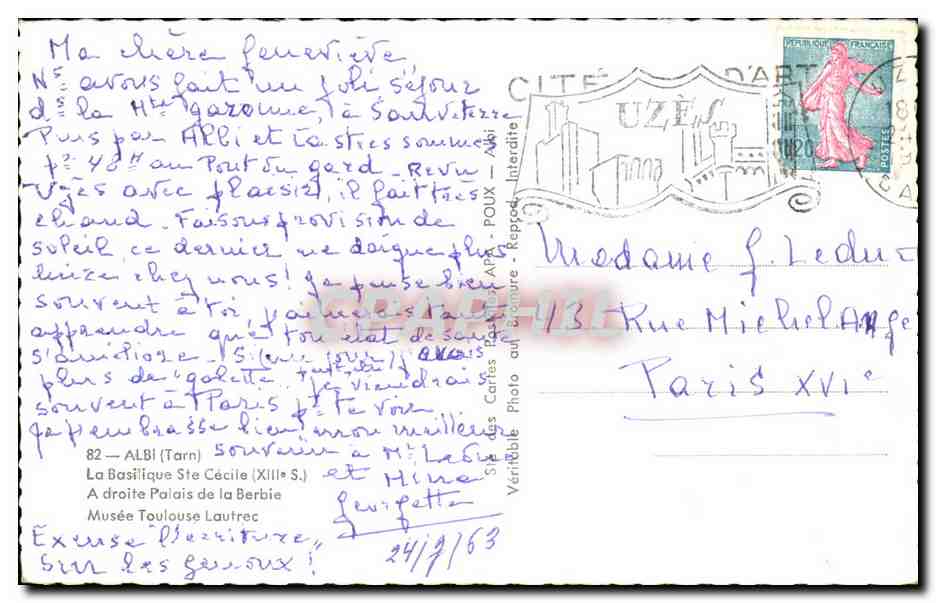 Ma chère Geneviève,
Ns avons fait un joli séjour
ds la Hte garonne, à Sauveterre
Puis par Albi et Castres sommes
pr 48h au Pont du gard. Revu
Uzès avec plaisir, il fait très
chaud. Faisons provision de
soleil, ce dernier ne daigne plus
luire chez nous! Je pense bien
souvent à toi, j'aimerais tant
apprendre que ton état de santé
s'améliore. Si j'avais
plus de "galette" je viendrais
souvent à Paris pr te voir
Je t'embrasse bien mon meilleur
souvenir à Mr Leduc
et Mina
Georgette
Excuse l'écriture,
sur les genoux!
24/7/63
82 — ALBI (Tarn)
La Basilique Ste Cécile (XIIIe S.)
A droite Palais de la Berbie
Musée Toulouse Lautrec
Sté des Cartes Postales APA - POUX - Albi
Véritable Photo au Bromure - Reprod. Interdite
CITÉ D'ART
UZÈS
RÉPUBLIQUE FRANÇAISE
POSTES
Madame G. Leduc
43 Rue Michel Ange
Paris XVIe